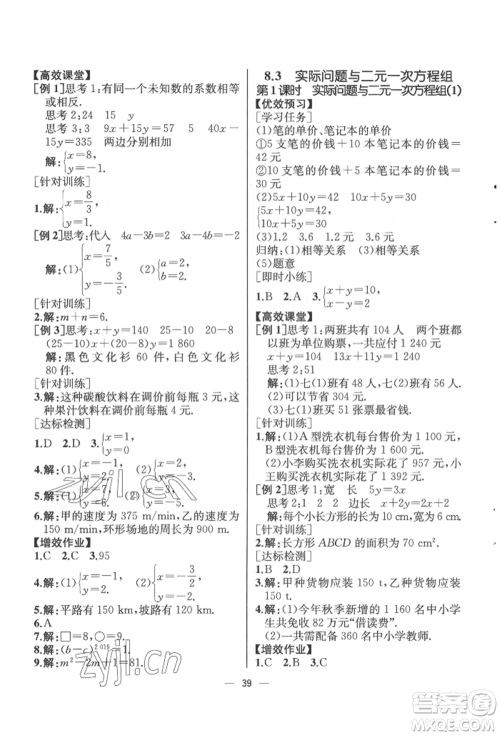 【高效课堂】
[例 1]思考 1:有同一个未知数的系数相等
或相反.
思考 2:24 15 y
思考 3:3 9x+15y=57 5 40x-15y
=-6 两边分别相加
解:{x=8,
y=1.
[针对训练]
1.解:{x=8/3,
y=1.
[例 2]思考:代入 4a-3b=2 3a-4b=-2
解:(1){x=1, (2){a=2,
y=1. b=2.
[针对训练]
2.解:m+n=6.
[例 3]思考:x+y=110 25-10 20-10
(25-10)x+(20-10)y=1 500
解:黑色文化衫 60 件,白色文化衫
80 件.
[针对训练]
3.解:这种碳酸饮料在调价前每瓶 3 元,这
种果汁饮料在调价前每瓶 4 元.
[达标检测]
1.D 2.D 3.{x=1,
y=0
4.解:(1){x=2, (2){x=
y=1. y=
5.解:(1){ (2){
6.解:甲的速度为 375 m/min,乙的速度为
150 m/min,环形场地的周长为 900 m.
【增效作业】
1.C 2.C 3.95
4.解:(1){x= (2){x=-2,
y= y=-3.
5.解:平路有 150 km,坡路有 120 km.
6.A
7.解:□=8,○=2.
8.解:m²-2m+1=81.
8.3 实际问题与二元一次方程组
第 1 课时 实际问题与二元一次方程组(1)
【优效预习】
[学习任务]
(1)笔的单价、笔记本的单价
①5 支笔的价钱+10 本笔记本的价钱=
42 元
②10 支笔的价钱+5 本笔记本的价钱=
30 元
(2)5x+10y=42 10x+5y=30
{5x+10y=42,
10x+5y=30
(3)1.2 3.6 1.2 3.6
归纳:(1)相等关系 (3)相等关系
(5)题意
[即时小练]
1.B 2.A 3.{x+y=10,
x-y=2
【高效课堂】
[例 1]思考 1:两班共有 104 人 两班都
以班为单位购票,一共应付 1 240
元 x+y=104 13x+11y=1 240
思考 2:104
解:(1)七(1)班有 48 人,七(2)班有
56 人.
(2)七(1)班买 51 张票最省钱.
[针对训练]
1.解:(1)A 型洗衣机每台售价为 1 100
元,B 型洗衣机每台售价为 1 600 元.
(2)小李购买洗衣机实际花了 957
元,小王购买洗衣机实际花了
1 392 元.
[例 2]思考 1:宽 长
思考 2:2 2x x+3y
解:每个小长方形的长为 10 cm,宽
为 6 cm.
[针对训练]
2.解:长方形 ABCD 的面积为 70 cm².
[达标检测]
1.D
2.解:甲种货物应装 150 t,乙种货物应装
150 t.
3.解:(1)今年秋季新增的 1 160 名中小学
生共免收 82 万元“借读费”.
(2)一共需配备 360 名中小学教师.
【增效作业】
1.C 2.B
39